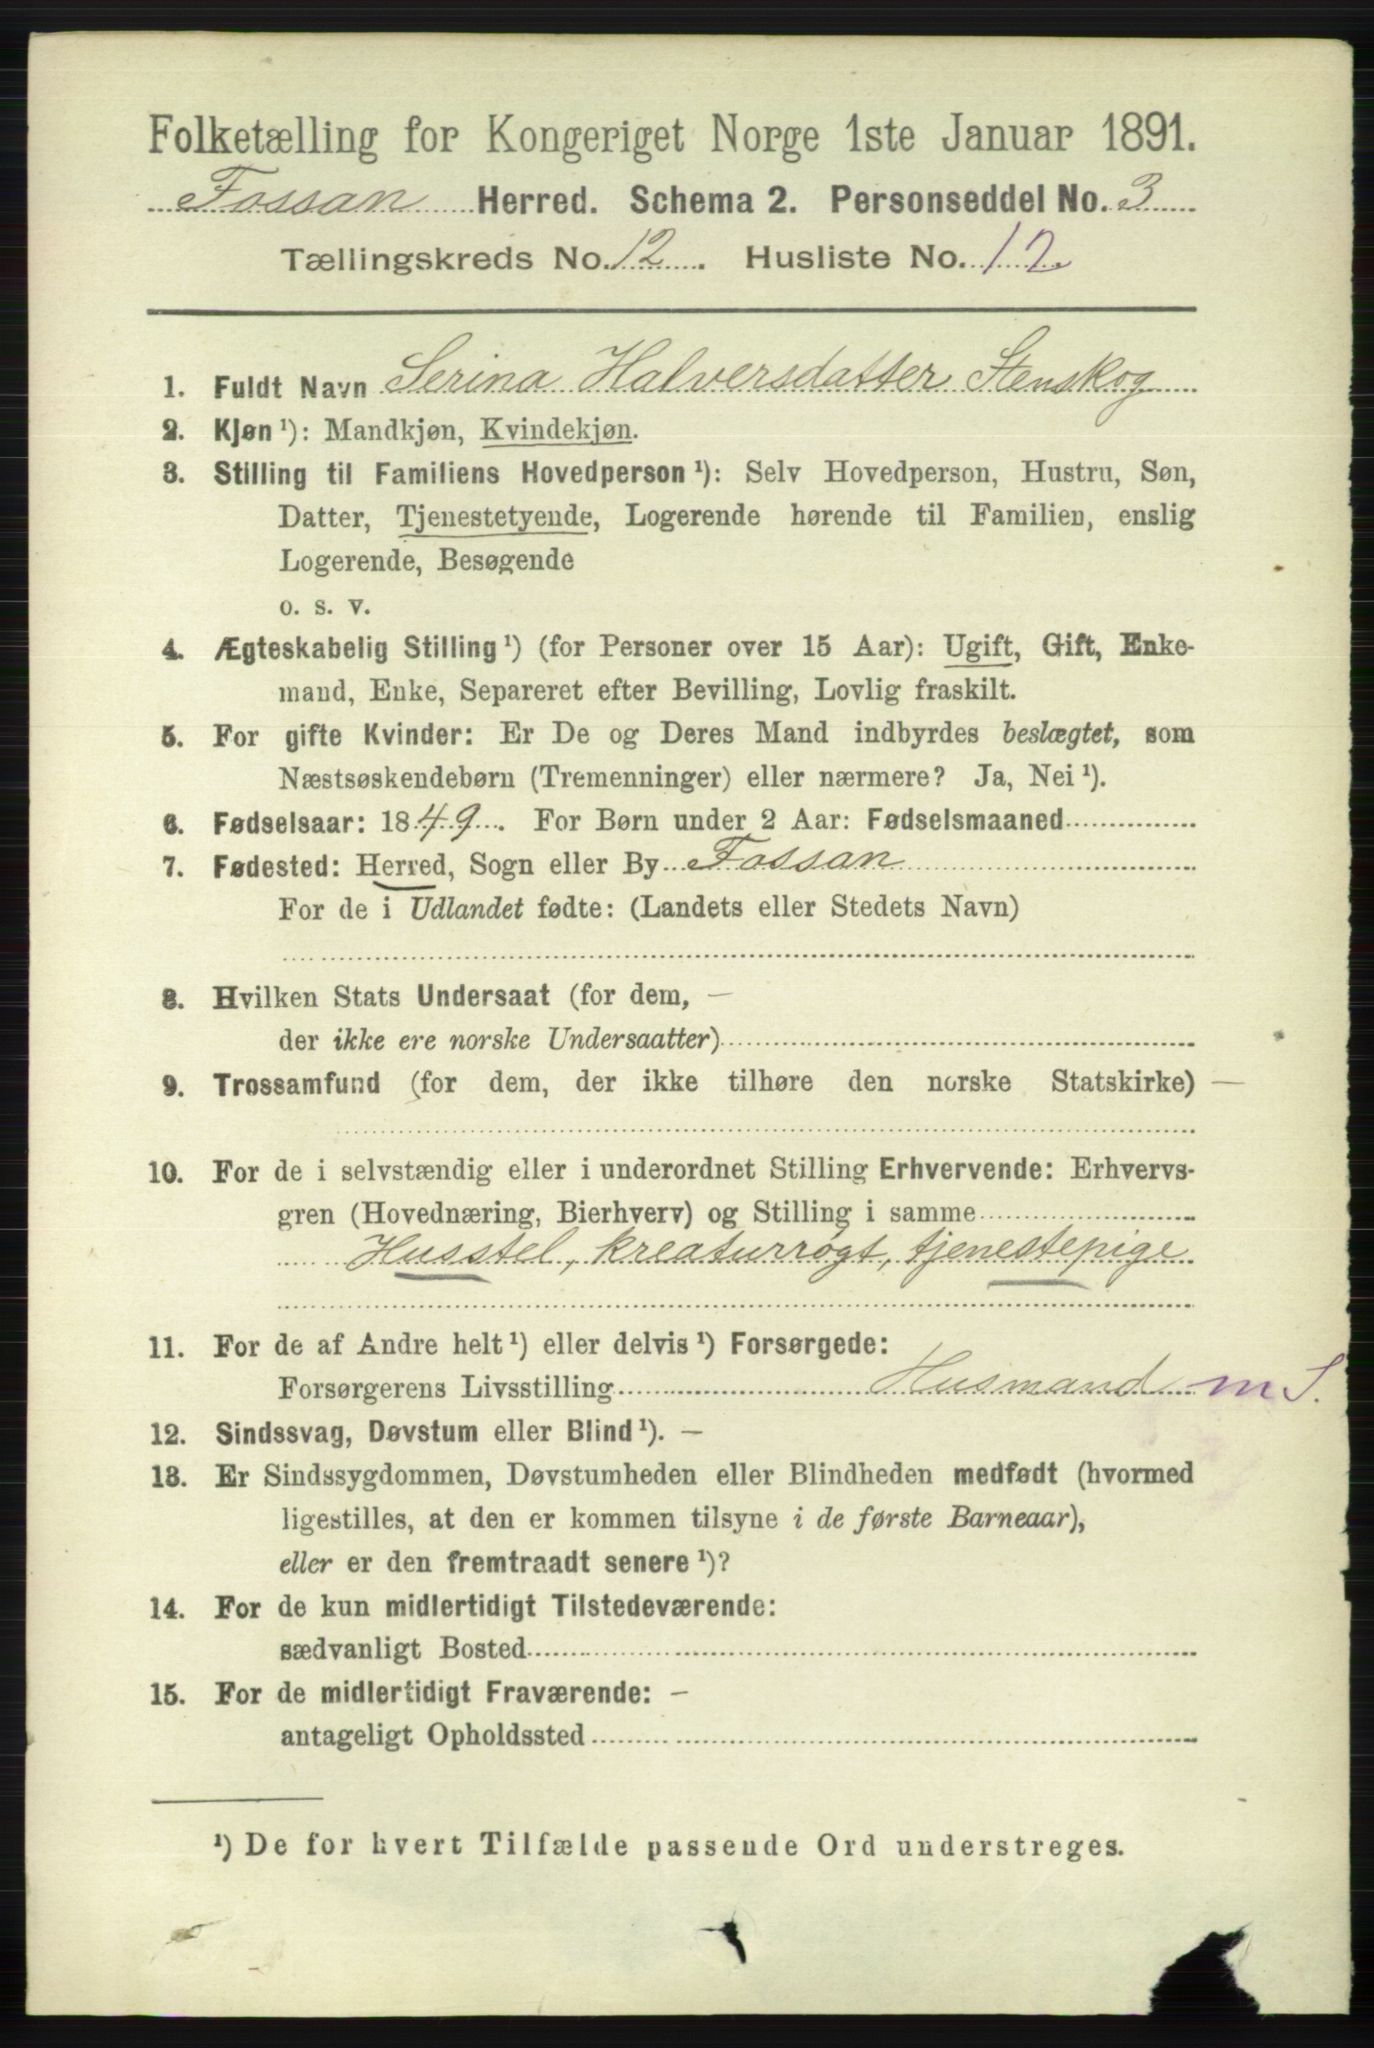 Folketælling for Kongeriget Norge 1ste Januar 1891.
Fossan Herred. Schema 2. Personseddel No. 3
Tællingskreds No. 12. Husliste No. 12
1. Fuldt Navn Serina Halversdatter Stenskog
2. Kjøn ¹): Mandkjøn, Kvindekjøn.
3. Stilling til Familiens Hovedperson ¹): Selv Hovedperson, Hustru, Søn,
Datter, Tjenestetyende, Logerende hørende til Familien, enslig
Logerende, Besøgende
o. s. v.
4. Ægteskabelig Stilling ¹) (for Personer over 15 Aar): Ugift, Gift, Enke-
mand, Enke, Separeret efter Bevilling, Lovlig fraskilt.
5. For gifte Kvinder: Er De og Deres Mand indbyrdes beslægtet, som
Næstsøskendebørn (Tremenninger) eller nærmere? Ja, Nei ¹).
6. Fødselsaar: 1849. For Børn under 2 Aar: Fødselsmaaned
7. Fødested: Herred, Sogn eller By Fossan
For de i Udlandet fødte: (Landets eller Stedets Navn)
8. Hvilken Stats Undersaat (for dem, —
der ikke ere norske Undersaatter)
9. Trossamfund (for dem, der ikke tilhøre den norske Statskirke) —
10. For de i selvstændig eller i underordnet Stilling Erhvervende: Erhvervs-
gren (Hovednæring, Bierhverv) og Stilling i samme
Husstel, kreaturrøgt, tjenestepige
11. For de af Andre helt ¹) eller delvis ¹) Forsørgede:
Forsørgerens Livsstilling Husmand m S.
12. Sindssvag, Døvstum eller Blind ¹). —
13. Er Sindssygdommen, Døvstumheden eller Blindheden medfødt (hvormed
ligestilles, at den er kommen tilsyne i de første Barneaar),
eller er den fremtraadt senere ¹)?
14. For de kun midlertidigt Tilstedeværende:
sædvanligt Bosted
15. For de midlertidigt Fraværende: —
antageligt Opholdssted
¹) De for hvert Tilfælde passende Ord understreges.